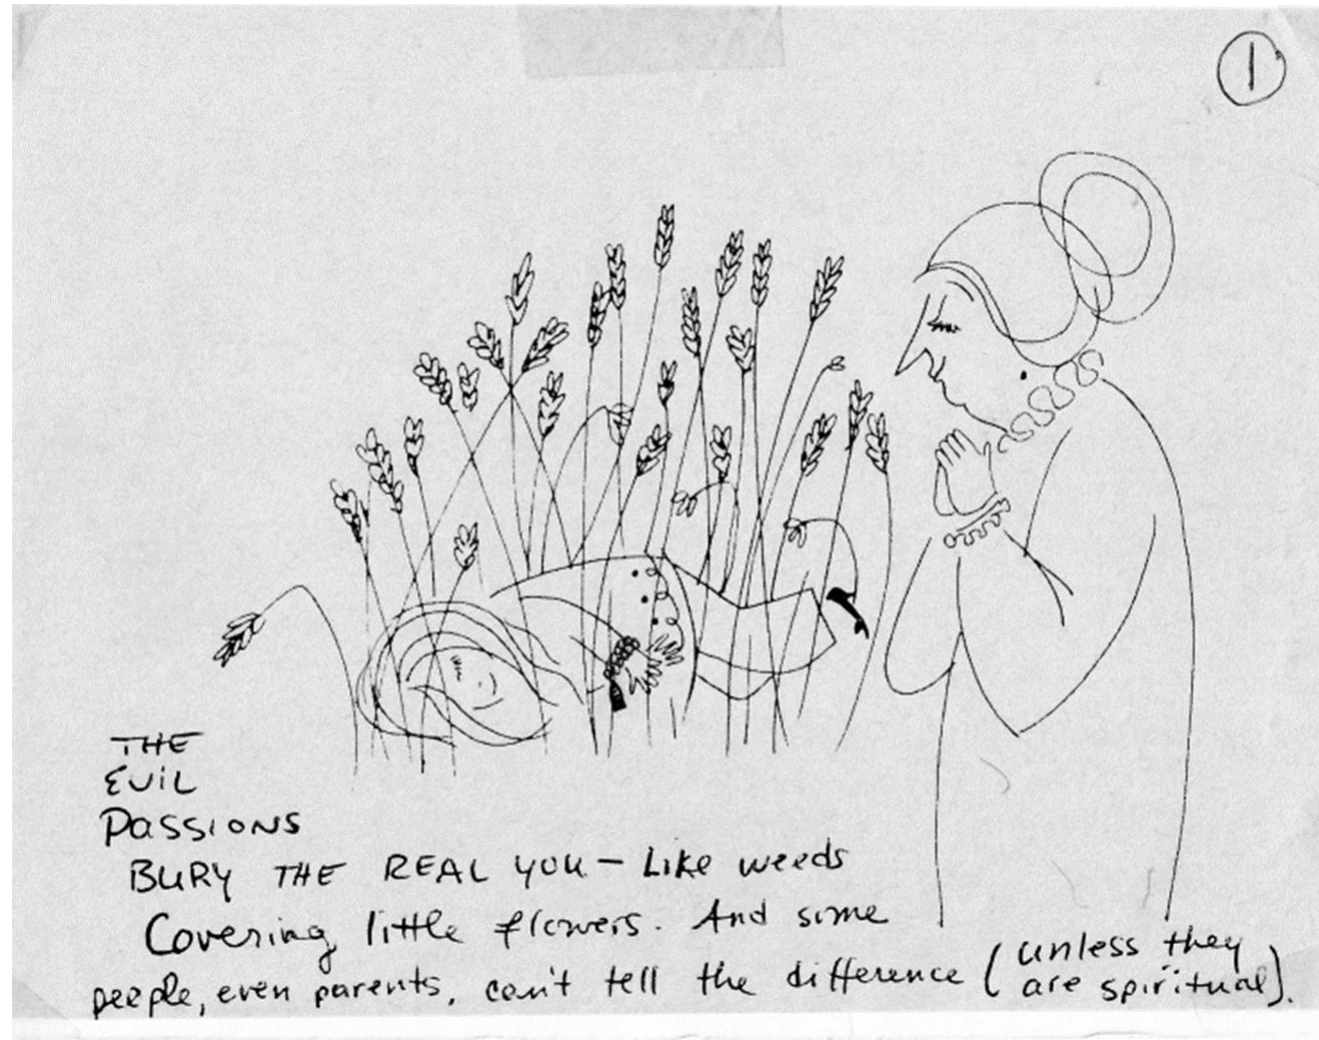 1
THE
EViL
PASSIONS
BURY THE REAL YOU – Like weeds
Covering little flowers. And some
people, even parents, can't tell the difference (unless they
are spiritual).